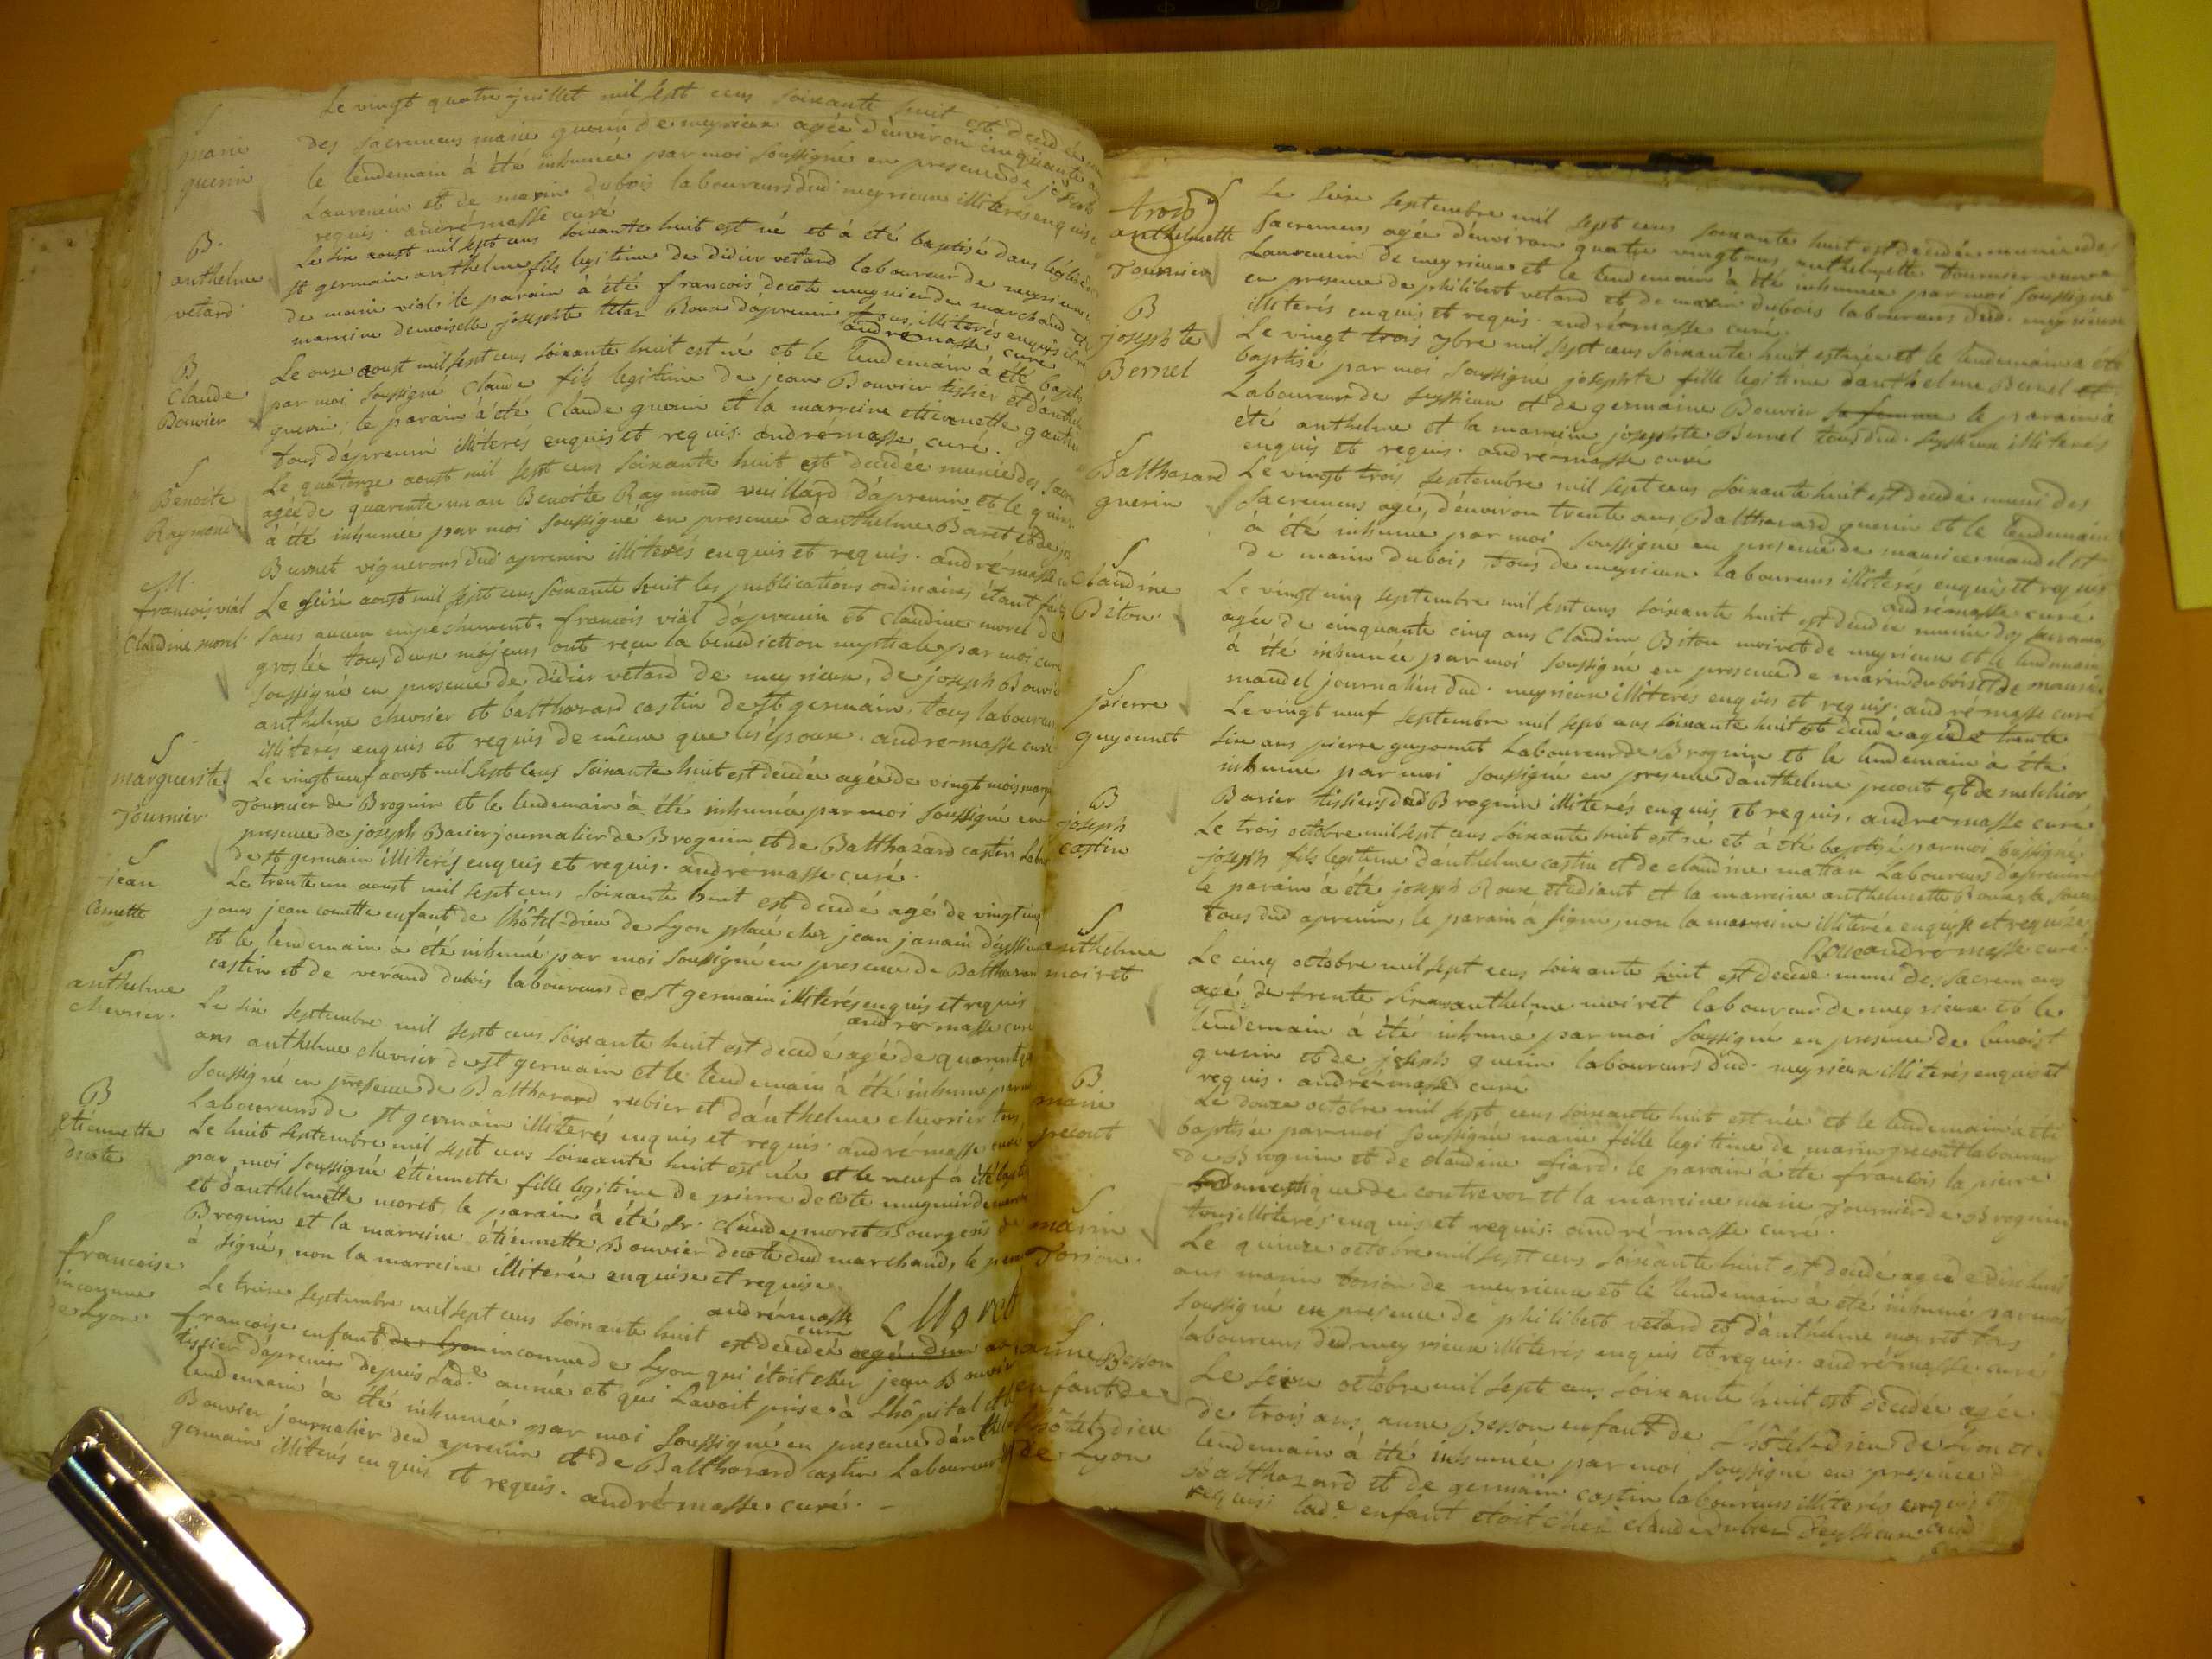 S
marie
guerin
Le vingt quatre juillet mil sept cens soixante huit est decedée
des sacremens marie guerin de meyrieux agée d'environ cinquante
le lendemain à été inhumée par moi soussigné en presence de joseph
Laurencin et de marin dubois laboureurs dud meyrieux illiterés enquis
requis. andré masse curé
B.
anthelme
vetard
Le six aoust mil sept cens soixante huit est né et à été baptisé dans l'église de
st germain anthelme fils legitime de didier vetard laboureur de meyrieux
de marie vial; le parain à été francois decote mugnier de marchand et la
marraine demoiselle josephte Roux d'apremin tous illiterés enquis et
andré masse curé
B
Claude
Bouvier
Le onze aoust mil sept cens soixante huit est né et le lendemain à été baptisé
par moi soussigné Claude fils legitime de jean Bouvier tissier et d'anthelmette
guerin; le parain à été Claude guerin et la marreine ettiennette gautier
tous d'apremin illiterés enquis et requis. andré masse curé.
S
Benoite
Raymond
Le quatorze aoust mil sept cens soixante huit est decedée munie des sacre
agée de quarante un an Benoite Raymond vuillard d'apremin et le quinze
à été inhumée par moi soussigné en presence d'anthelme Baret et de
Burnet vignerons dud apremin illiterés enquis et requis. andré masse
M.
francois vial
Claudine morel
Le seize aoust mil sept cens soixante huit les publications ordinaires étant faites
sans aucun empechement, francois vial d'apremin et claudine morel de
groslée tous deux majeurs ont reçu la benediction nuptiale par moi curé
soussigné en presence de didier vetard de meyrieux, de joseph Bouvier
anthelme chevrier et balthazard castin de st germain, tous laboureurs
illiterés enquis et requis de même que les époux. andré masse curé
S
marguerite
Tournier
Le vingt neuf aoust mil sept cens soixante huit est decedée agée de vingt mois marguerite
Tournier de Brognin et le lendemain à été inhumée par moi soussigné en
presence de joseph Barier journalier de Brognin et de Balthazard castin labou
de st germain illiterés enquis et requis. andré masse curé.
S
jean
Comette
Le trente un aoust mil sept cens soixante huit est decedé agé de vingt cinq
jours jean comette enfant de l'hôtel-dieu de Lyon placé chez jean janain
et le lendemain à été inhumé par moi soussigné en presence de Balthazard
castin et de verand dubois laboureurs de st germain illiterés enquis et requis
andré masse curé
S
anthelme
chevrier.
Le six septembre mil sept cens soixante huit est decedé agé de quarente
ans anthelme chevrier de st germain et le lendemain à été inhumé par moi
soussigné en presence de Balthazard rubier et d'anthelme chevrier tous
Laboureurs de st germain illiterés enquis et requis. andré masse curé
B
Etiennette
decote
Le huit septembre mil sept cens soixante huit est née et le neuf à été bapt
par moi soussigné étiennette fille legitime de pierre decote mugnier de marchand
et d'anthelmette moret. le parain à été sr. claude moret Bourgeois de
Brognin et la marreine étiennette Bouvier decote dud marchand, le parain
à signé, non la marreine illiterée enquise et requise.
andré masse curé C Moret
francoise
inconnue
de Lyon.
Le treize septembre mil sept cens soixante huit est decedée agée d'un an
francoise enfant de Lyon inconnue de Lyon qui étoit chez jean Bouvier
tissier d'apremin depuis lad.e année et qui l'avoit prise à l'hôpital et le
lendemain à été inhumée par moi soussigné en presence d'anthelme
Bouvier journalier dud apremin et de Balthazard castin Laboureur de st
germain illiterés enquis et requis. andré masse curé.
S
trois
anthelmette
Tournier
Le seize septembre mil sept cens soixante huit est decedée munie des
sacremens agée d'environ quatre vingt ans anthelmette tournier veuve
Laurencin de meyrieux et le lendemain à été inhumée par moi soussigné
en presence de philibert vetard et de marin dubois laboureurs dud. meyrieux
illiterés enquis et requis. andré masse curé.
B
josephte
Bernel
Le vingt trois 7bre mil sept cens soixante huit est née et le lendemain a été
baptisé par moi soussigné josephte fille legitime d'anthelme Bernel et
Laboureur de seyssieux et de germaine Bouvier sa femme le parain à
été anthelme et la marreine josephte Bernel tous dud. seyssieux illiterés
enquis et requis. andré masse curé
Balthazard
guerin
Le vingt trois septembre mil sept cens soixante huit est decedé muni des
sacremens agé, d'environ trente ans, Balthazard guerin et le lendemain
à été inhumé par moi soussigné en presence de maurice mandel et
de marin dubois tous de meyrieux laboureurs illiterés enquis et requis
andré masse curé
S
Claudine
Beton.
Le vingt cinq septembre mil sept cens soixante huit est decedée munie des sacremens
agée de cinquante cinq ans Claudine Béton moiret de meyrieux et le lendemain
à été inhumée par moi soussigné en presence de marin dubois et de maurice
mandel journaliers dud. meyrieux illiterés enquis et requis. andré masse curé
S
pierre
guyonnet
Le vingt neuf septembre mil sept cens soixante huit est decedé agé de trente
six ans pierre guyonnet Laboureur de Brognin et le lendemain à été
inhumé par moi soussigné en presence d'anthelme precout et de melchior
Barier tissiers dud Brognin illiterés enquis et requis. andré masse curé
B
joseph
castin
Le trois octobre mil sept cens soixante huit est né et à été baptisé par moi soussigné
joseph fils legitime d'anthelme castin et de claudine mattan Laboureurs d'apremin
le parain à été joseph Roux etudiant et la marreine anthelmette Roux sa soeur
tous dud apremin, le parain à signé, non la marreine illiterée enquise et requise.
Roux andré masse curé
S
anthelme
moiret
Le cinq octobre mil sept cens soixante huit est decedé muni des sacremens
agé de trente six ans anthelme moiret laboureur de meyrieux et le
lendemain à été inhumé par moi soussigné en presence de benoist
guerin et de joseph guerin laboureurs dud. meyrieux illiterés enquis et
requis. andré masse curé
B
marie
precout
Le douze octobre mil sept cens soixante huit est née et le lendemain à été
baptisée par moi soussigné marie fille legitime de marin precout laboureur
de Brognin et de claudine fiard. le parain a été francois la pierre
domestique de contrevoz et la marreine marie Tournier de Brognin
tous illiterés enquis et requis. andré masse curé.
S
marin
Torion.
Le quinze octobre mil sept cens soixante huit est decedé agé de dix huit
ans marin torion de meyrieux et le lendemain à été inhumé par moi
soussigné en presence de philibert vetard et d'anthelme moiret tous
laboureurs dud meyrieux illiterés enquis et requis. andré masse curé
S
anne Besson
enfant de
l'hôtel dieu
de Lyon
Le seize octobre mil sept cens soixante huit est decedée agée
de trois ans anne Besson enfant de l'hôtel-dieu de Lyon et le
lendemain à été inhumée par moi soussigné en presence de
Balthazard et de germain castin laboureurs illiterés enquis et
requis. lad.e enfant étoit chez claude rubier